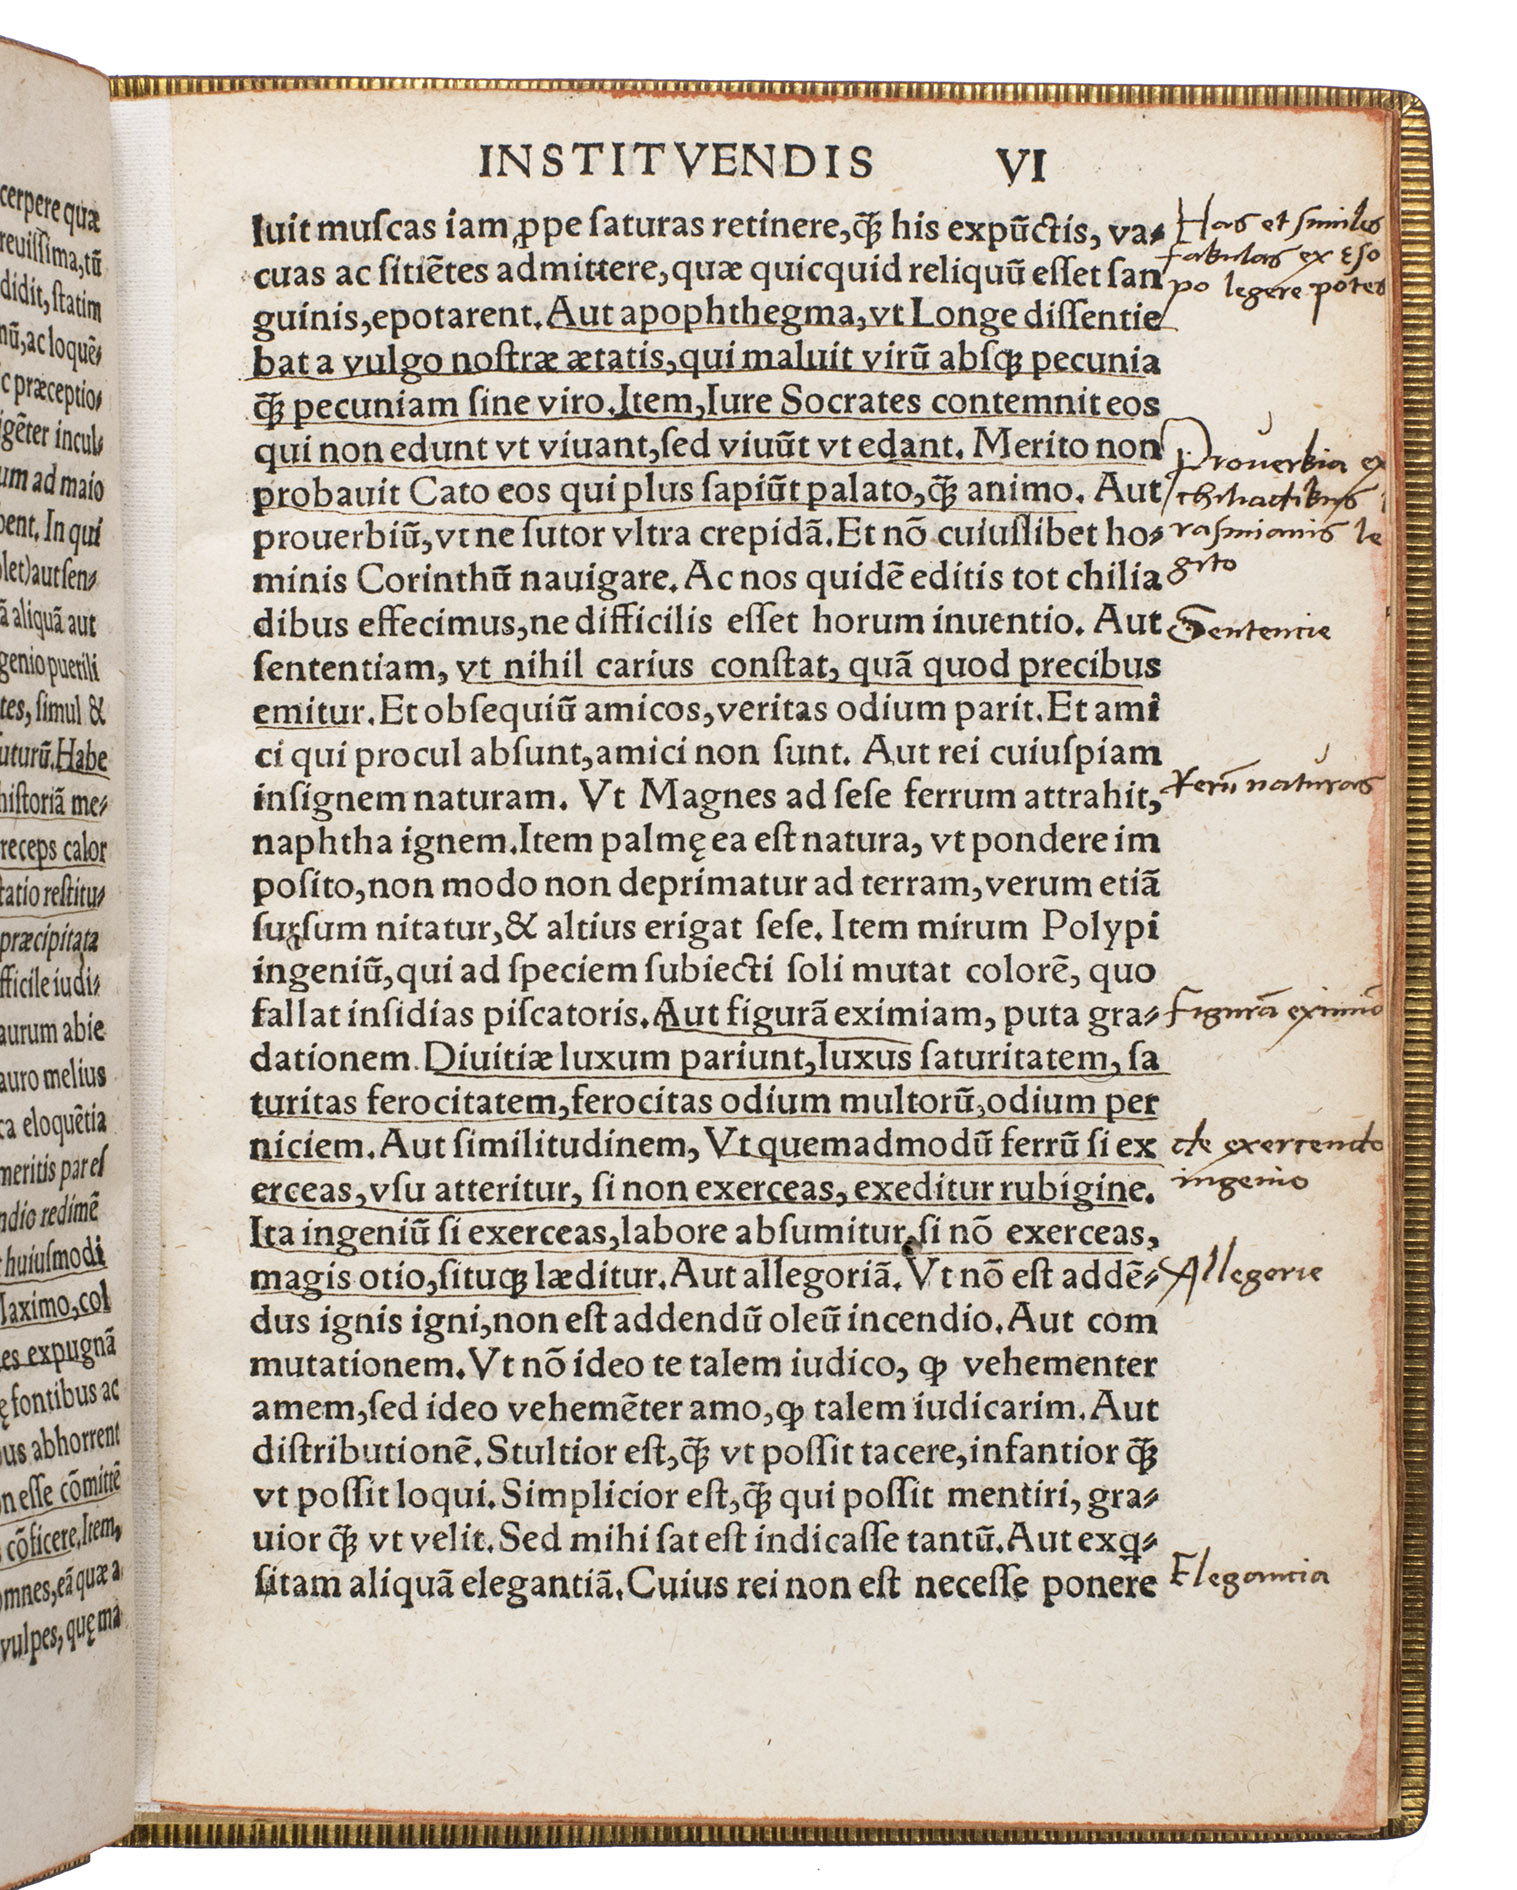 cerpere quæ
reuiſſima, tū
didit, ſtatim
nū, ac loquē⸗
c præceptio⸗
igēter incul⸗
um ad maio
bent. In qui
olet) aut ſen⸗
ā aliquā aut
genio puerili
tes, ſimul &
uturū. Habe
hiſtoriā me⸗
receps calor
tatio reſtitu⸗
præcipitata
fficile iudi⸗
aurum abie
auro melius
ca eloquētia
meritis par eſ
ndio redimē
huiuſmodi
Maximo, col
es expugnā
ę fontibus ac
ous abhorrent
n eſſe cōmittē
cōficere. Item,
omnes, eā quæ a
vulpes, quę ma
INSTITVENDIS VI
luit muſcas iam ꝓpe ſaturas retinere, ꝙ̃ his expūctis, va⸗
cuas ac ſitiētes admittere, quæ quicquid reliquū eſſet ſan
guinis, epotarent. Aut apophthegma, vt Longe diſſentie
bat a vulgo noſtræ ætatis, qui maluit virū abſqꝫ pecunia
ꝙ̃ pecuniam ſine viro. Item, Iure Socrates contemnit eos
qui non edunt vt viuant, ſed viuūt vt edant. Merito non
probauit Cato eos qui plus ſapiūt palato, ꝙ̃ animo. Aut
prouerbiū, vt ne ſutor vltra crepidā. Et nō cuiuſlibet ho⸗
minis Corinthū nauigare. Ac nos quidē editis tot chilia
dibus effecimus, ne difficilis eſſet horum inuentio. Aut
ſententiam, vt nihil carius conſtat, quā quod precibus
emitur. Et obſequiū amicos, veritas odium parit. Et ami
ci qui procul abſunt, amici non ſunt. Aut rei cuiuſpiam
inſignem naturam. Vt Magnes ad ſeſe ferrum attrahit,
naphtha ignem. Item palmę ea eſt natura, vt pondere im
poſito, non modo non deprimatur ad terram, verum etiā
ſurſum nitatur, & altius erigat ſeſe. Item mirum Polypi
ingeniū, qui ad ſpeciem ſubiecti ſoli mutat colorē, quo
fallat inſidias piſcatoris. Aut figurā eximiam, puta gra⸗
dationem. Diuitiæ luxum pariunt, luxus ſaturitatem, ſa
turitas ferocitatem, ferocitas odium multorū, odium per
niciem. Aut ſimilitudinem, Vt quemadmodū ferrū ſi ex
erceas, vſu atteritur, ſi non exerceas, exeditur rubigine.
Ita ingeniū ſi exerceas, labore abſumitur, ſi nō exerceas,
magis otio, ſituqꝫ læditur. Aut allegoriā. Vt nō eſt addē⸗
dus ignis igni, non eſt addendū oleū incendio. Aut com
mutationem. Vt nō ideo te talem iudico, ꝙ vehementer
amem, ſed ideo vehemēter amo, ꝙ talem iudicarim. Aut
diſtributionē. Stultior eſt, ꝙ̃ vt poſſit tacere, infantior ꝙ̃
vt poſſit loqui. Simplicior eſt, ꝙ̃ qui poſſit mentiri, gra⸗
uior ꝙ̃ vt velit. Sed mihi ſat eſt indicaſſe tantū. Aut exq̇⸗
ſitam aliquā elegantiā. Cuius rei non eſt neceſſe ponere
Has et similes
fabulas ex Eso
po legere potes
Prouerbia ex
chiliadibus
rasmianis le
gito
Sentencie
Rerū naturas
figurā eximiā
de exercendo
ingenio
Allegorie
Elegantia